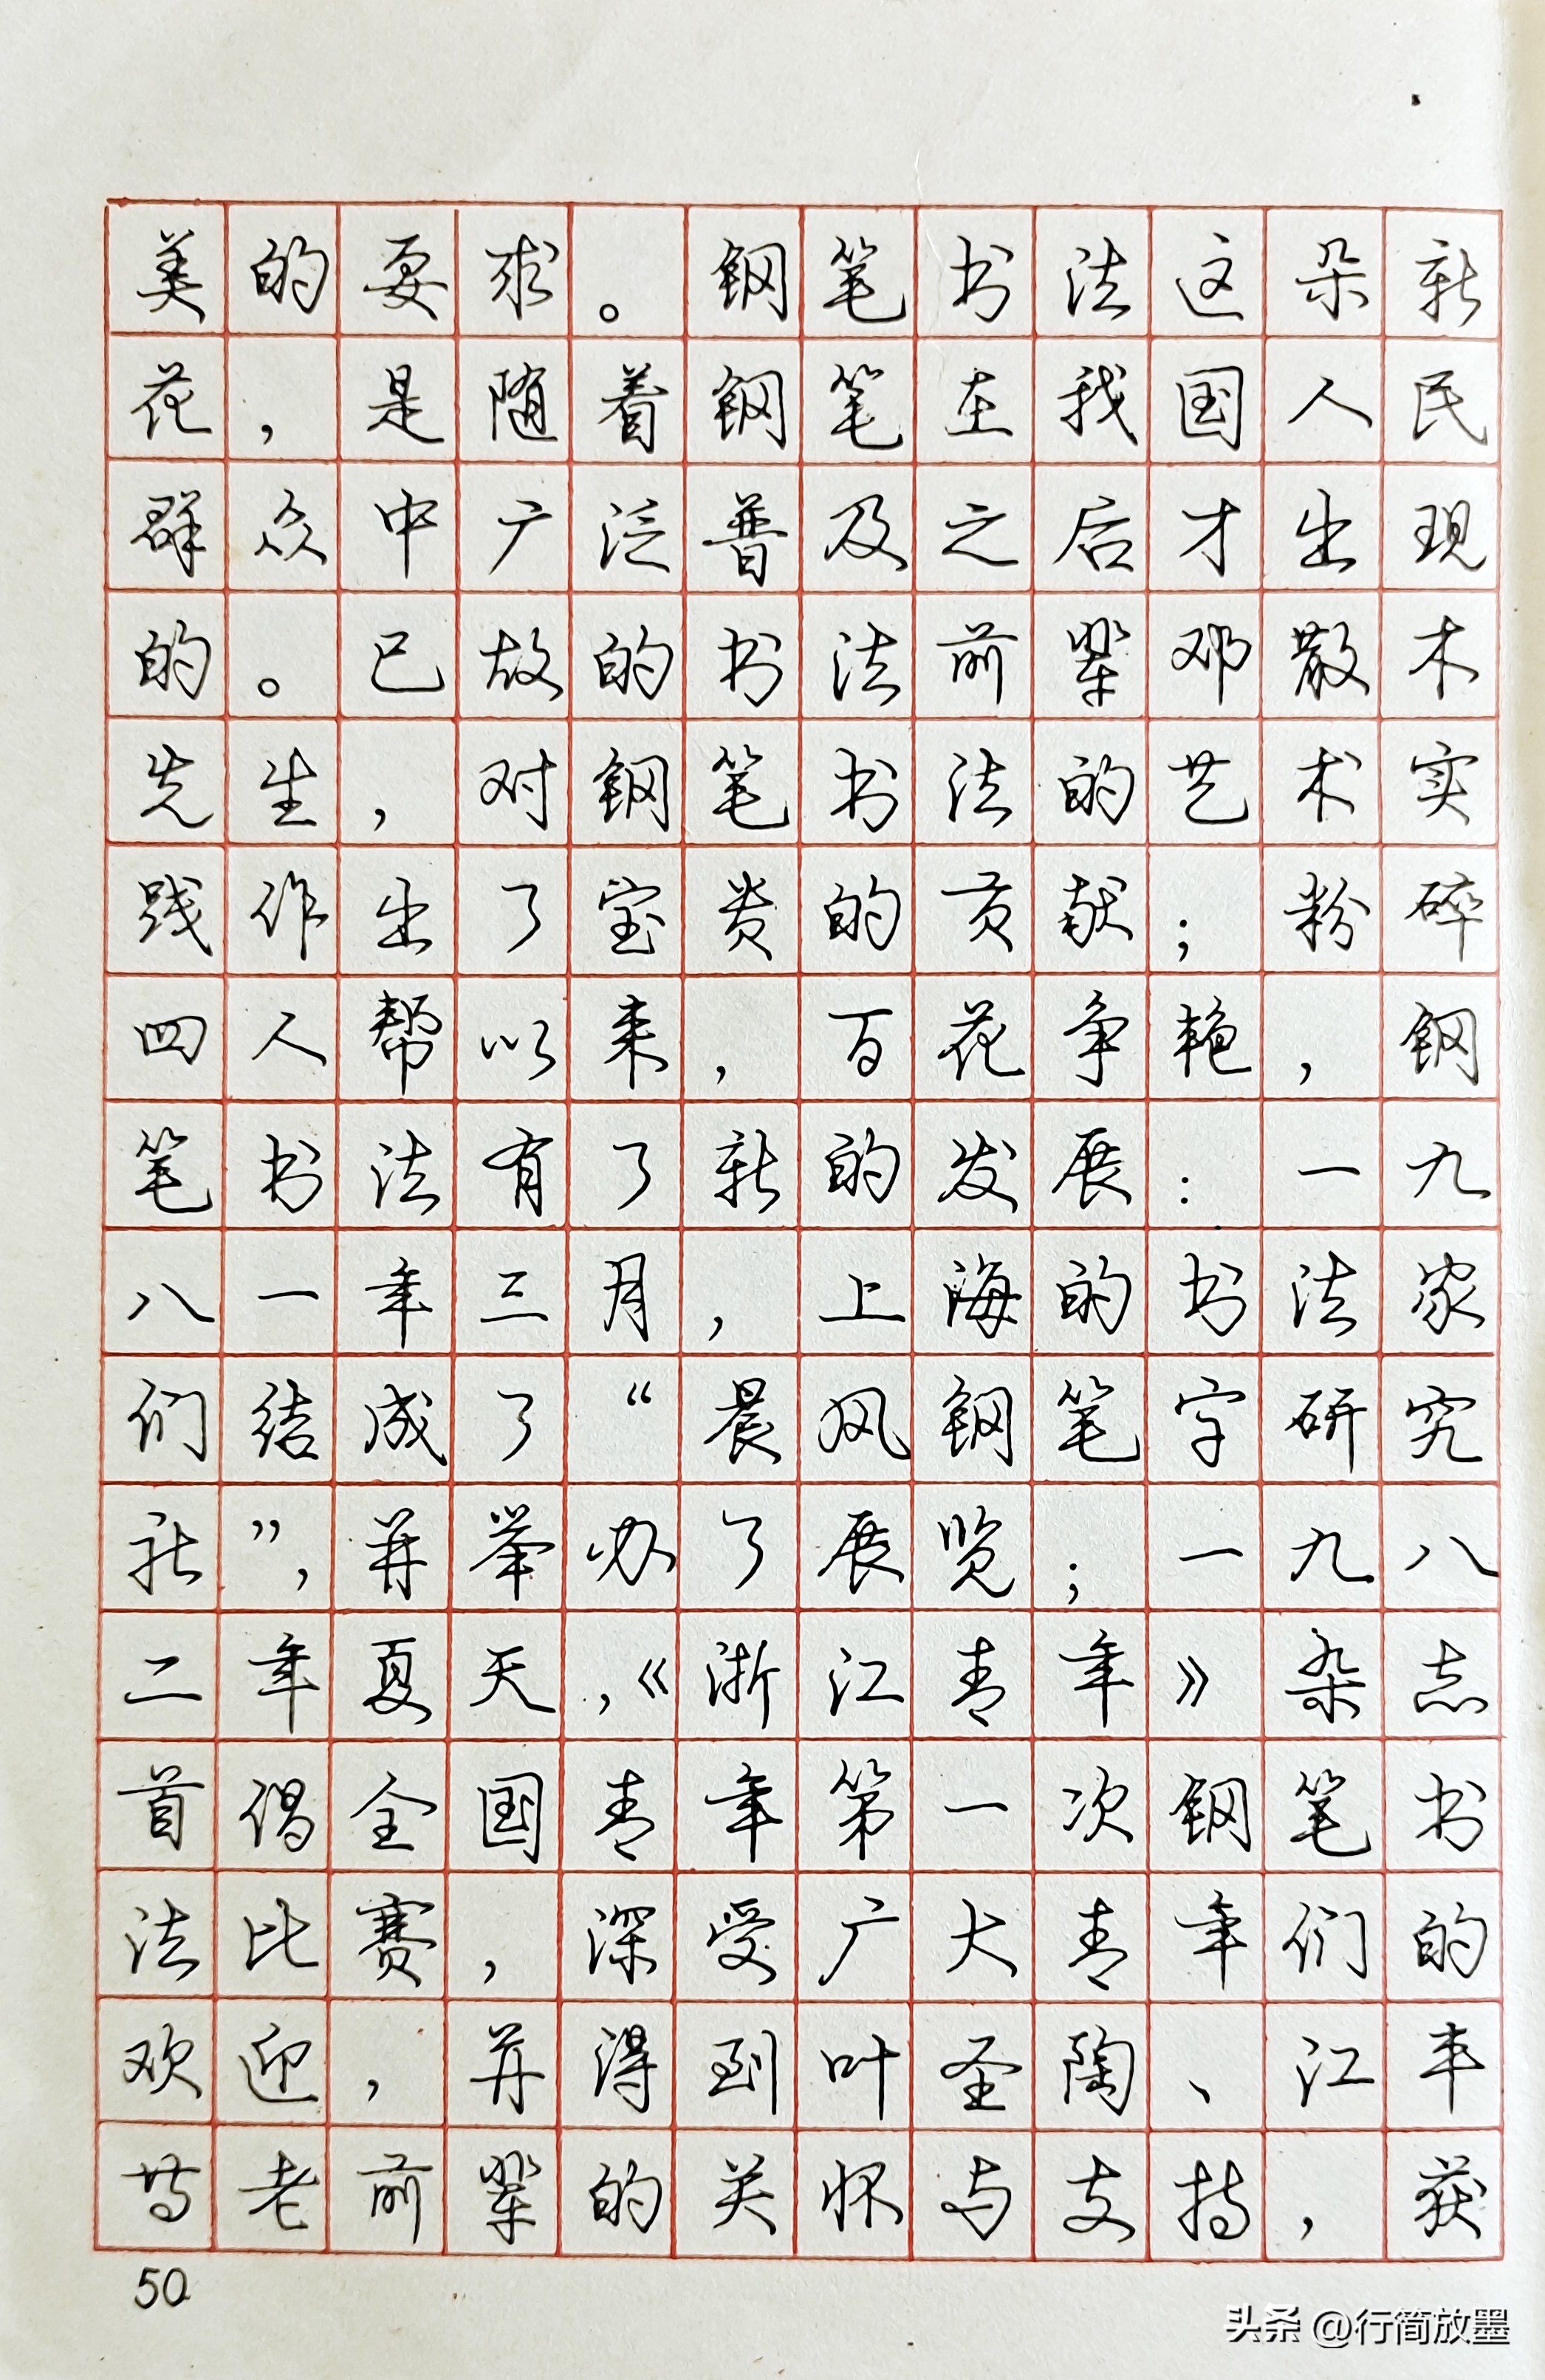 美的要求。钢笔书法这朵新
花，是随着钢笔在我国人民
群众中广泛普及之后才出现
的。已故的书法前辈邓散木
先生，对钢笔书法的艺术实
践作出了宝贵的贡献；粉碎
四人帮以来，百花争艳，钢
笔书法有了新的发展：一九
八一年三月，上海的书法家
们结成了“晨风钢笔字研究
社”，并举办了展览；一九八
二年夏天，《浙江青年》杂志
首倡全国青年第一次钢笔书
法比赛，深受广大青年们的
欢迎，并得到叶圣陶、江丰
等老前辈的关怀与支持，获
50
头条 @行简放墨